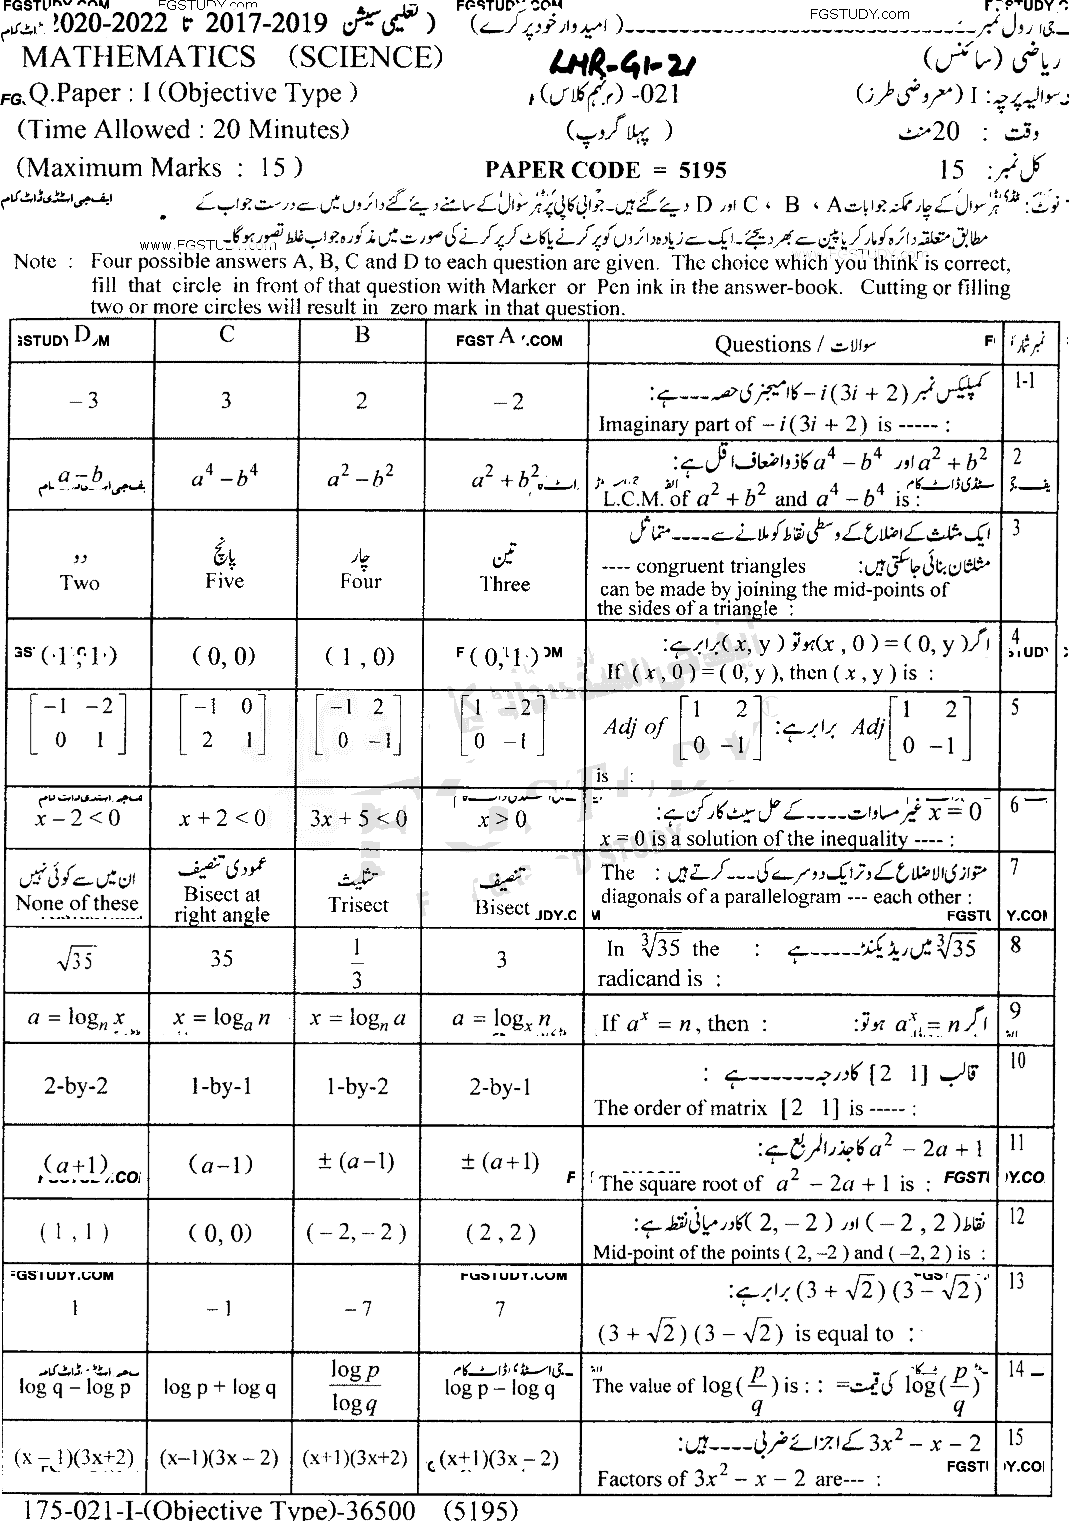 FGSTUDY.com
تعلیمی سیشن 2017-2019 تا 2020-2022 (امیدوار خود پر کرے)
MATHEMATICS (SCIENCE) LHR-G1-21 ریاضی (سائنس)
Q.Paper : I (Objective Type ) 021- (نہم کلاس) سوالیہ پرچہ : I (معروضی طرز)
(Time Allowed : 20 Minutes) (پہلا گروپ) وقت : 20 منٹ
(Maximum Marks : 15 ) PAPER CODE = 5195 کل نمبر : 15
نوٹ: ہر سوال کے چار ممکنہ جوابات A ، B ، C اور D دیئے گئے ہیں۔ جوابی کاپی پر ہر سوال کے سامنے دیئے گئے دائروں میں سے درست جواب کے
مطابق متعلقہ دائرہ کو مارکر یا پین سے بھر دیجئے۔ ایک سے زیادہ دائروں کو پر کرنے یا کاٹ کر پر کرنے کی صورت میں مذکورہ جواب غلط تصور ہوگا۔
Note : Four possible answers A, B, C and D to each question are given. The choice which you think is correct,
fill that circle in front of that question with Marker or Pen ink in the answer-book. Cutting or filling
two or more circles will result in zero mark in that question.
D C B A Questions / سوالات نمبر شمار
کمپلیکس نمبر −i(3i + 2) کا امیجنری حصہ ---- ہے: 1-1
−3 3 2 −2
Imaginary part of −i(3i + 2) is ----- :
a² + b² اور a⁴ − b⁴ کا ذواضعاف اقل ہے: 2
a − b a⁴ − b⁴ a² − b² a² + b²
L.C.M. of a² + b² and a⁴ − b⁴ is :
ایک مثلث کے اضلاع کے وسطی نقاط کو ملانے سے ---- متماثل 3
مثلثان بنائی جا سکتی ہیں:
دو پانچ چار تین
Two Five Four Three
---- congruent triangles
can be made by joining the mid-points of
the sides of a triangle :
اگر (x , 0) = (0, y) ہو تو (x, y) برابر ہے: 4
(1, 1) (0, 0) (1, 0) (0, 1)
If (x , 0) = (0, y), then (x , y) is :
[−1 −2 [−1 0 [−1 2 [1 −2 Adj of [1 2 برابر ہے: Adj [1 2 5
0 1] 2 1] 0 −1] 0 −1] 0 −1] 0 −1]
is :
x = 0 غیر مساوات ---- کے حل سیٹ کا رکن ہے: 6
x − 2 < 0 x + 2 < 0 3x + 5 < 0 x > 0
x = 0 is a solution of the inequality ---- :
متوازی الاضلاع کے وتر ایک دوسرے کی --- کرتے ہیں: The 7
ان میں سے کوئی نہیں عمودی تنصیف تثلیث تنصیف
None of these Bisect at right angle Trisect Bisect
diagonals of a parallelogram --- each other :
∛35 میں ریڈیکنڈ ----- ہے : In ∛35 the 8
√35 35 1/3 3
radicand is :
اگر aˣ = n ہو تو: If aˣ = n, then : 9
a = logₙ x x = logₐ n x = logₙ a a = logₓ n
قالب [2 1] کا درجہ ------ ہے : 10
2-by-2 1-by-1 1-by-2 2-by-1
The order of matrix [2 1] is ----- :
a² − 2a + 1 کا جذرالمربع ہے: 11
(a+1) (a−1) ± (a−1) ± (a+1)
The square root of a² − 2a + 1 is :
نقاط (−2 , 2) اور (2, −2) کا درمیانی نقطہ ہے: 12
(1 , 1) (0, 0) (−2, −2) (2, 2)
Mid-point of the points (2, −2) and (−2, 2) is :
(3 + √2) (3 − √2) برابر ہے: 13
1 −1 −7 7
(3 + √2) (3 − √2) is equal to :
log(p/q) کی قیمت = The value of log(p/q) is : : 14
log q − log p log p + log q log p / log q log p − log q
3x² − x − 2 کے اجزائے ضربی ---- ہیں: 15
(x − 1)(3x+2) (x−1)(3x − 2) (x+1)(3x+2) (x+1)(3x − 2)
Factors of 3x² − x − 2 are--- :
175-021-I-(Objective Type)-36500 (5195)